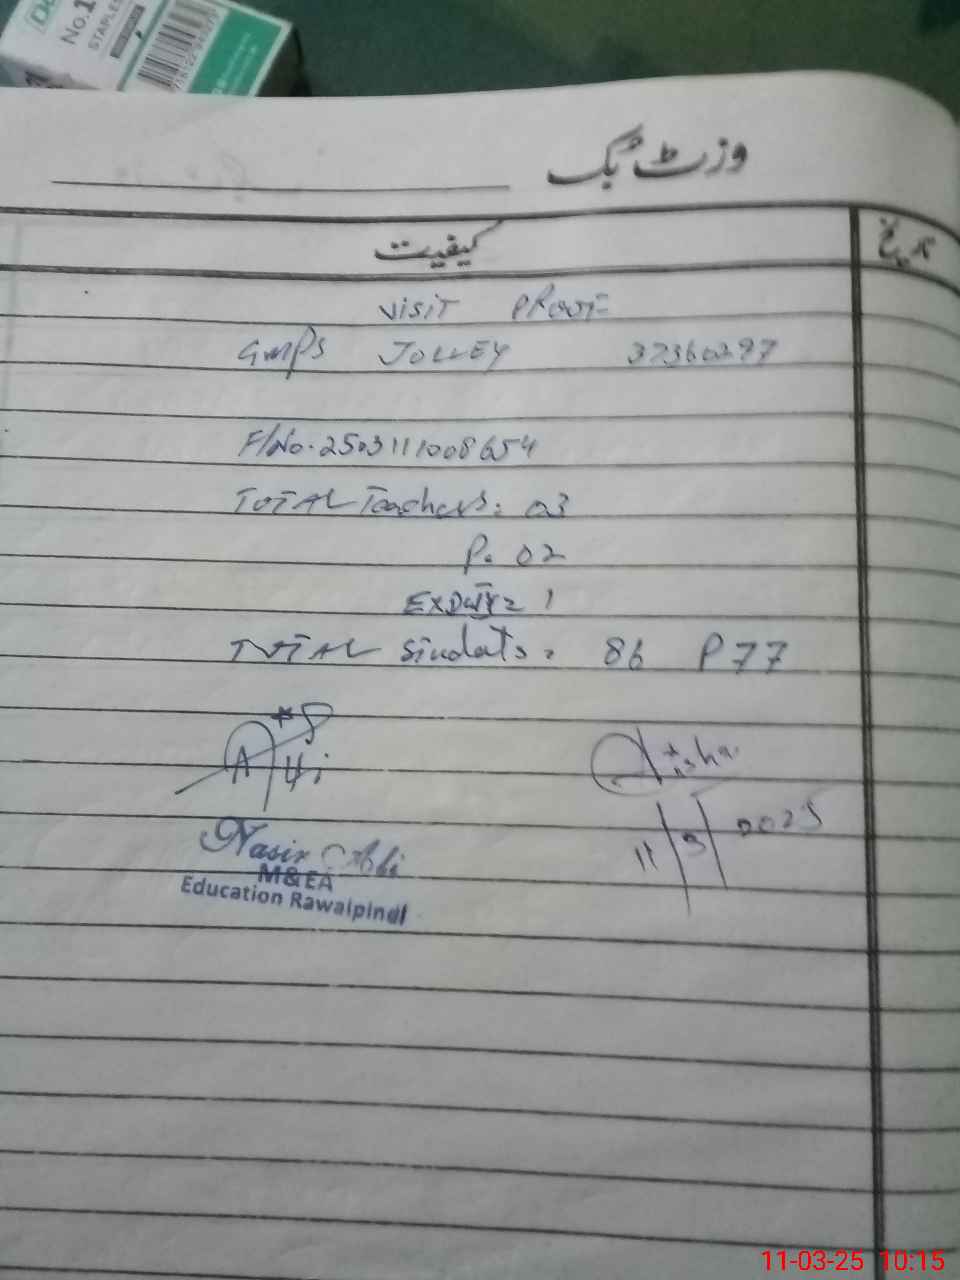 No.1
STAPLES
وزٹ بُک
تاریخ
کیفیت
VISIT PROOF
GMPS JOLLEY 37360297
F/No. 2503111008654
TOTAL Teachers: 03
P. 02
EXDUTY= 1
TOTAL Studats: 86 P 77
Aisha
11/3/2025
Nasir Ali
M&EA
Education Rawalpindi
11-03-25 10:15